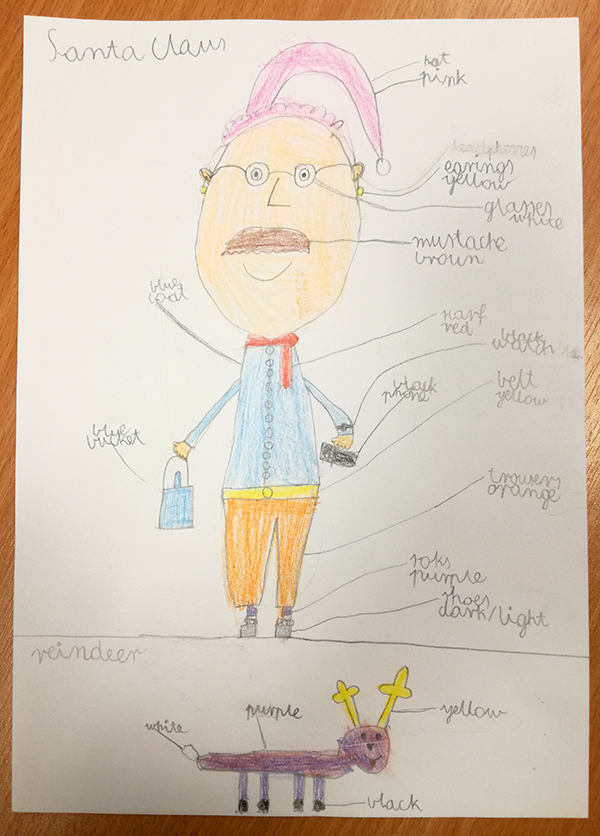 Santa Claus
hat
pink
headphones
earings
yellow
glasses
white
mustache
broun
blue
coat
scarf
red
black
watch
black
phone
belt
yellow
blue
bucket
trousers
orange
soks
purple
shoes
dark/light
reindeer
white
purple
yellow
black